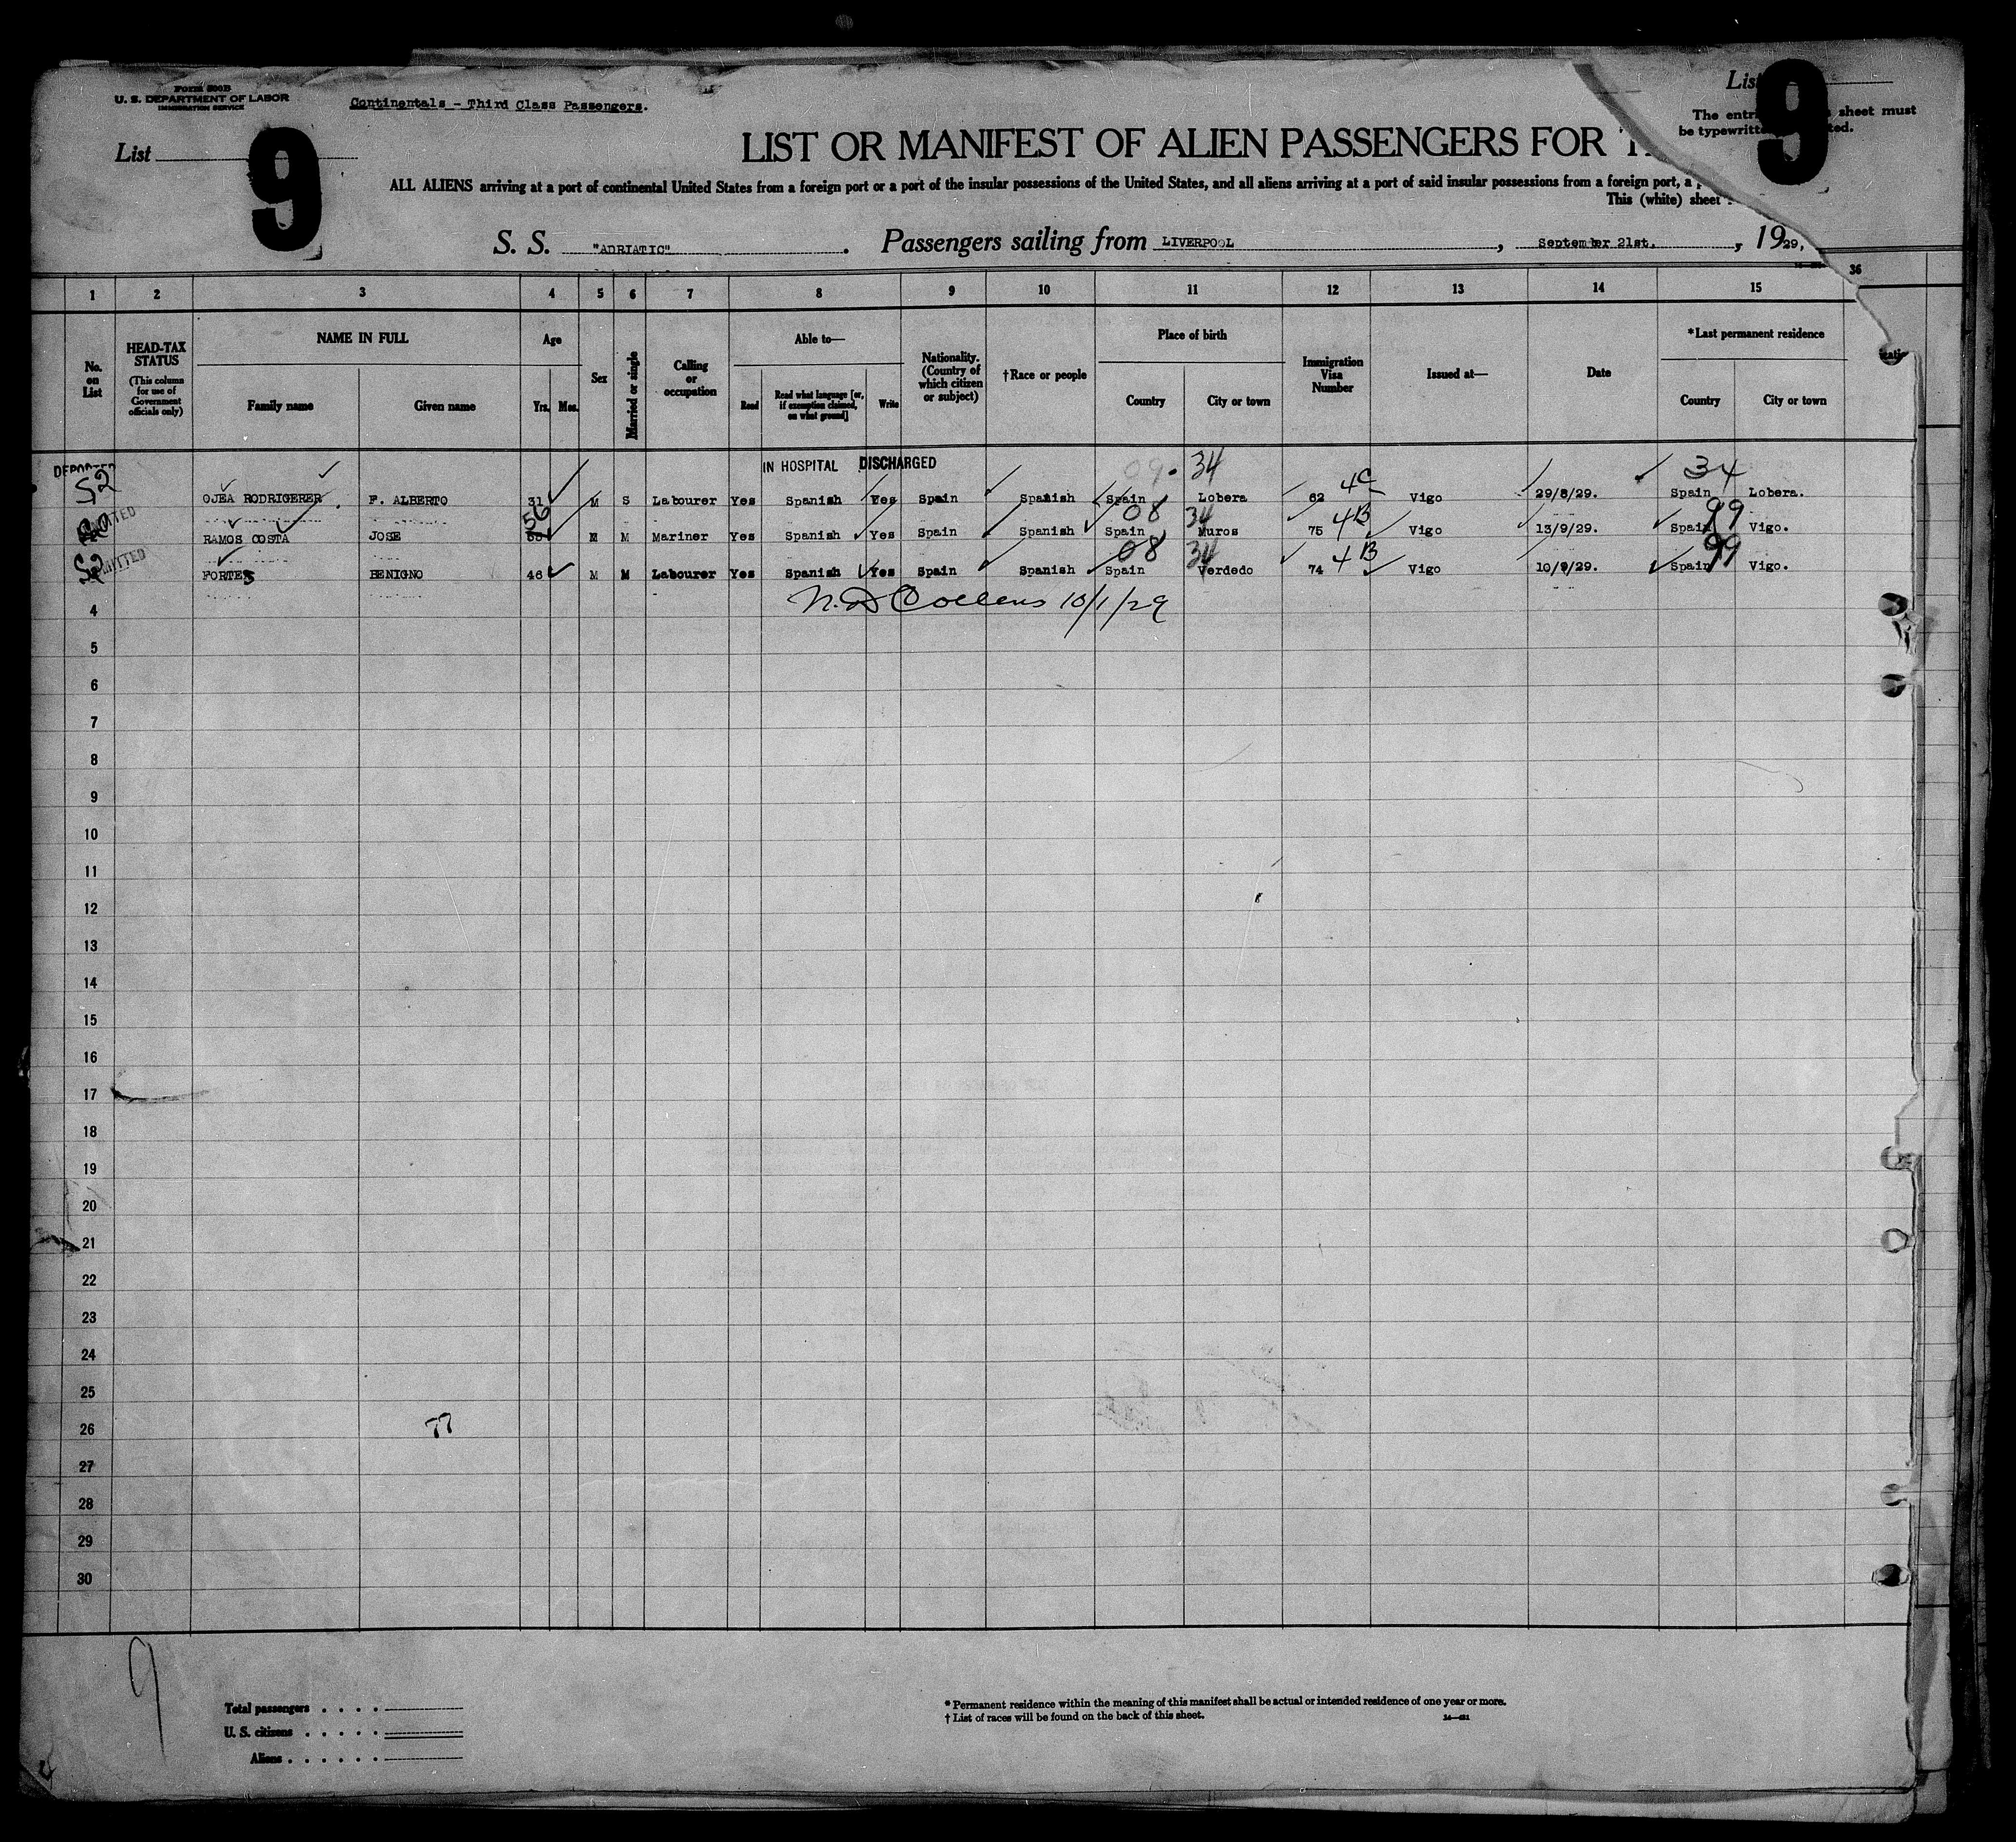 Form 500B
U. S. DEPARTMENT OF LABOR
IMMIGRATION SERVICE
Continentals - Third Class Passengers.
List 9
List 9
The entri sheet must
be typewritte ted.
LIST OR MANIFEST OF ALIEN PASSENGERS FOR
ALL ALIENS arriving at a port of continental United States from a foreign port or a port of the insular possessions of the United States, and all aliens arriving at a port of said insular possessions from a foreign port, a
This (white) sheet
S. S. "ADRIATIC". Passengers sailing from LIVERPOOL, September 21st., 1929,
36
1 2 3 4 5 6 7 8 9 10 11 12 13 14 15
No. on List
HEAD-TAX STATUS (This column for use of Government officials only)
NAME IN FULL
Family name Given name
Age
Yrs. Mos.
Sex
Married or single
Calling or occupation
Able to—
Read Read what language [or, if exemption claimed, on what ground] Write
Nationality. (Country of which citizen or subject)
†Race or people
Place of birth
Country City or town
Immigration Visa Number
Issued at—
Date
*Last permanent residence
Country City or town
DEPORTED IN HOSPITAL DISCHARGED 09 34 34
52 OJEA RODRIGERER F. ALBERTO 31 M S Labourer Yes Spanish Yes Spain Spanish Spain Lobera 62 4C Vigo 29/8/29. Spain Lobera.
56 08 34 4B 99
RAMOS COSTA JOSE M M Mariner Yes Spanish Yes Spain Spanish Spain Muros 75 Vigo 13/9/29. Spain Vigo.
08 34 4B 99
52 FORTES BENIGNO 46 M M Labourer Yes Spanish Yes Spain Spanish Spain Verdedo 74 Vigo 10/9/29. Spain Vigo.
4 N.D Collens 10/1/29
5
6
7
8
9
10
11
12
13
14
15
16
17
18
19
20
21
22
23
24
25
26 77
27
28
29
30
9
Total passengers . . . .
U. S. citizens . . . . .
Aliens . . . . . .
* Permanent residence within the meaning of this manifest shall be actual or intended residence of one year or more.
† List of races will be found on the back of this sheet.